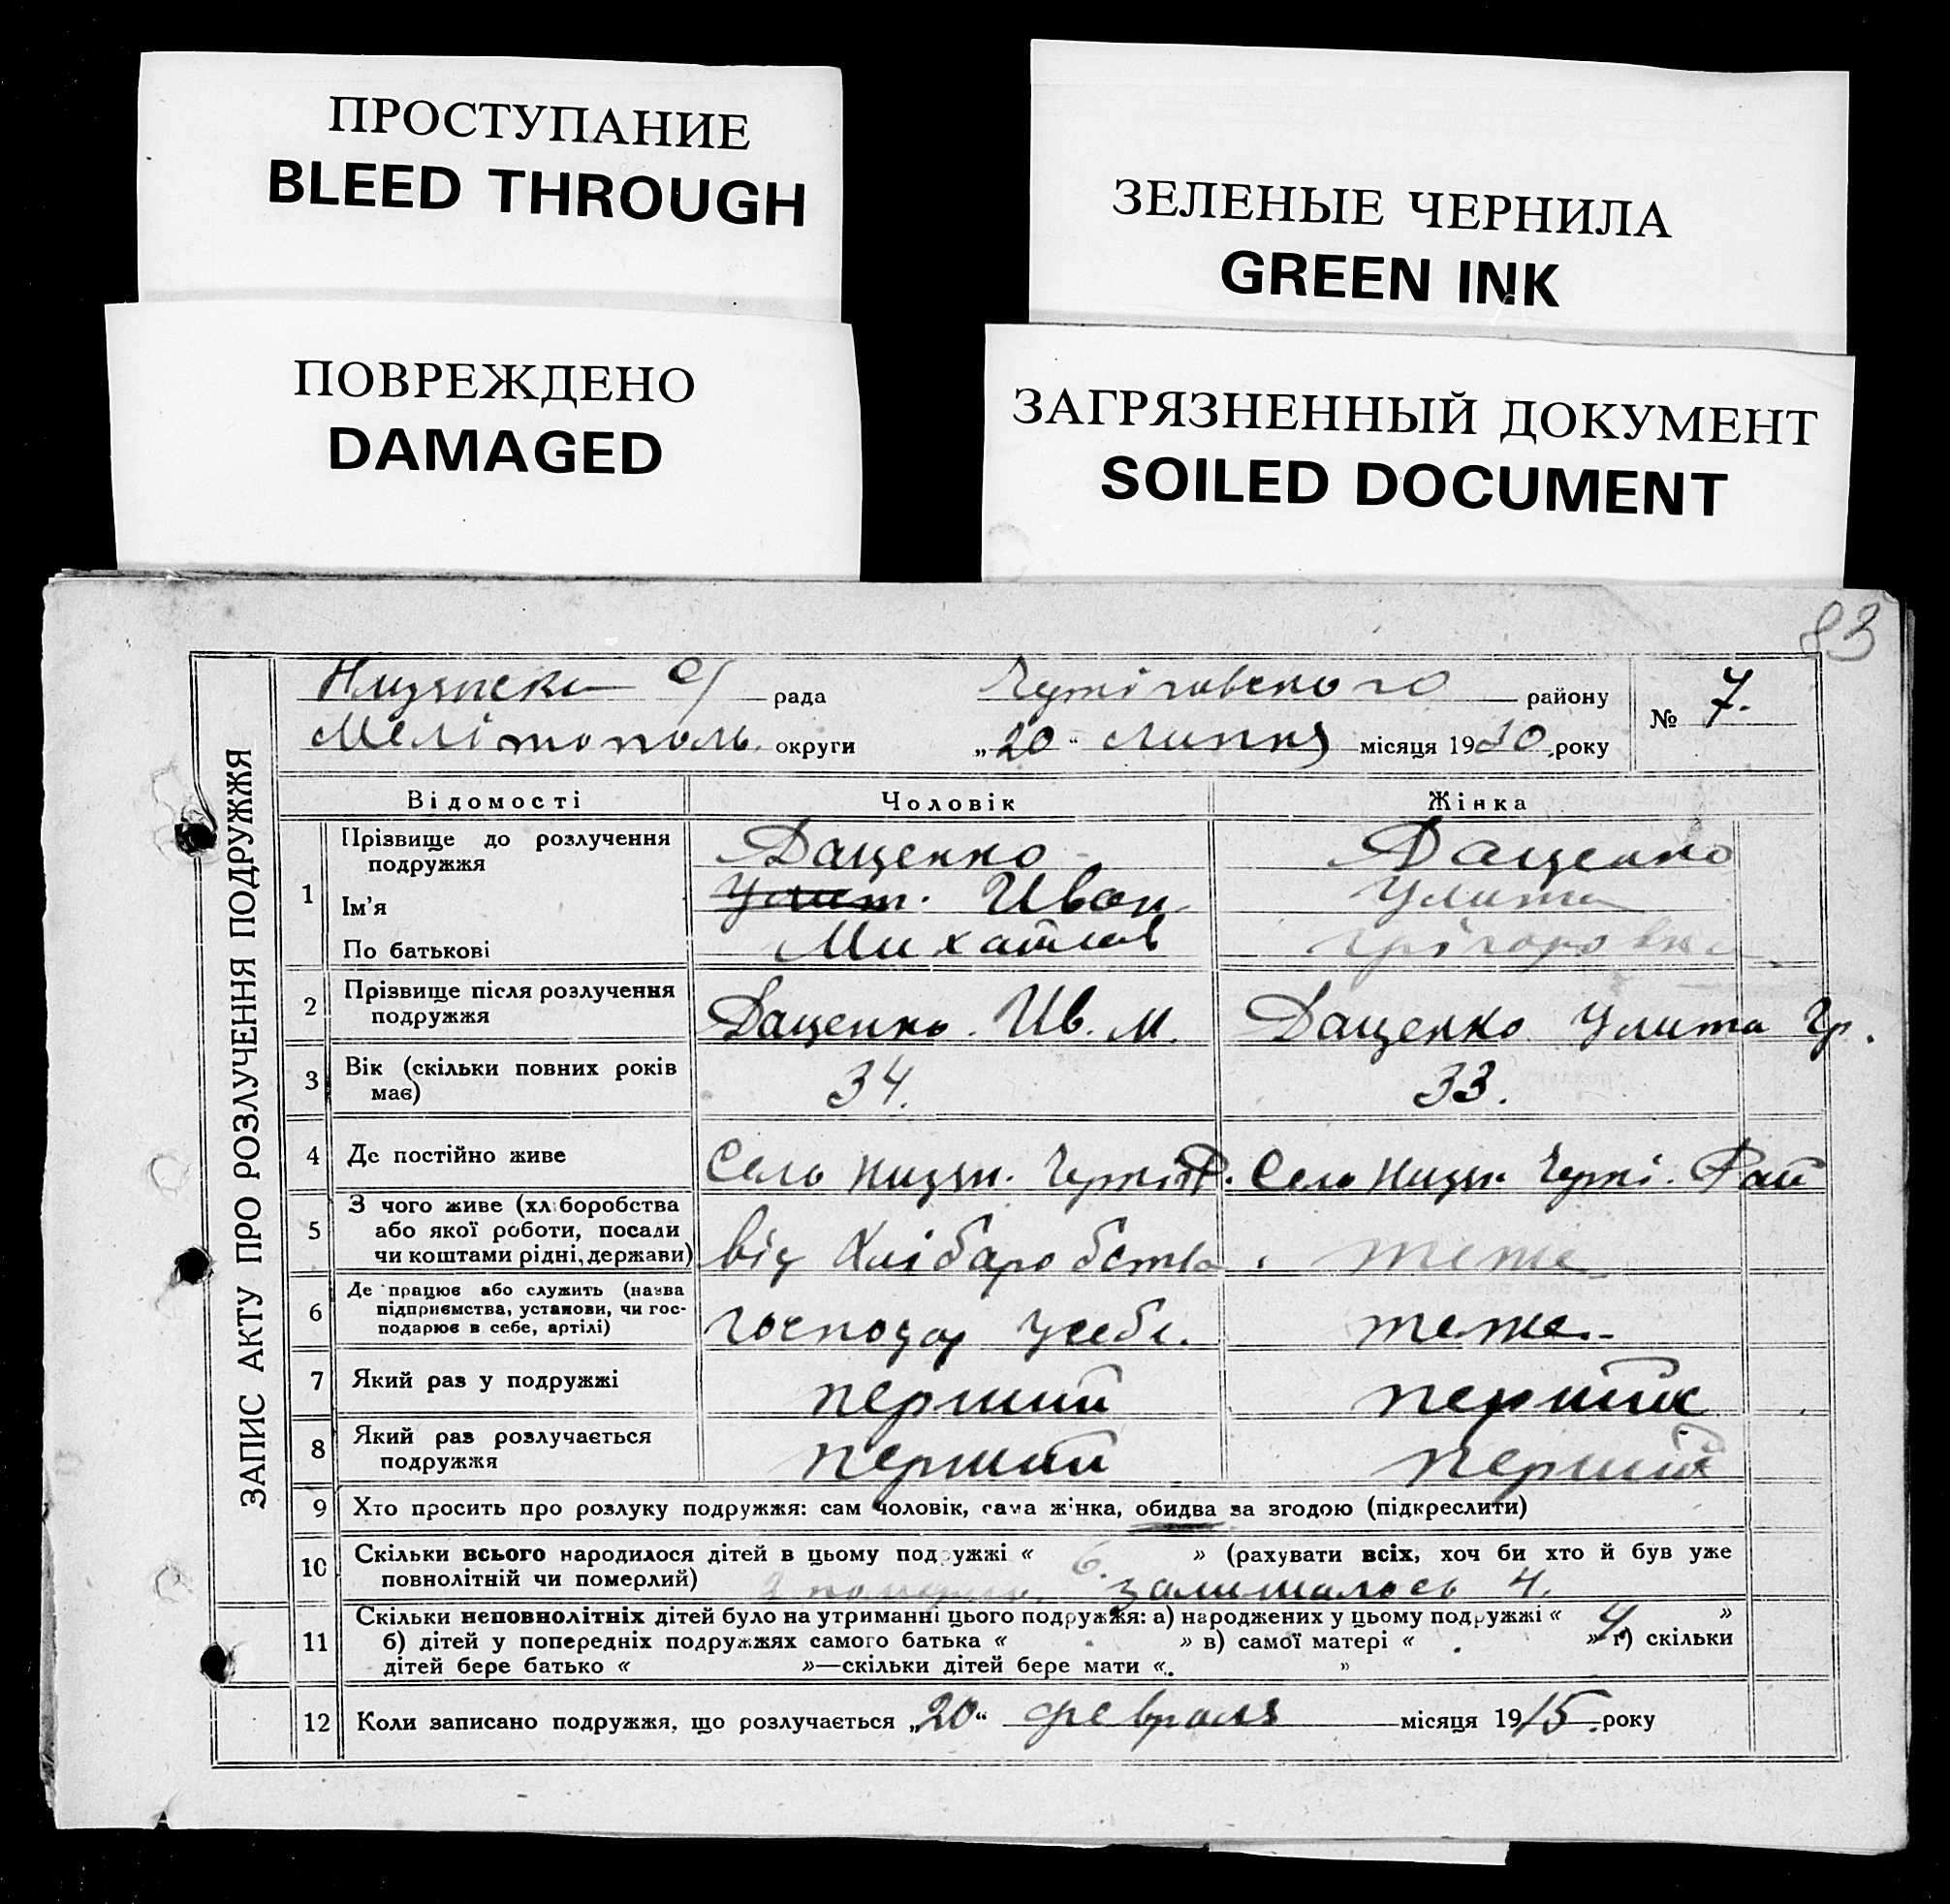 ПРОСТУПАНИЕ
BLEED THROUGH
ЗЕЛЕНЫЕ ЧЕРНИЛА
GREEN INK
ПОВРЕЖДЕНО
DAMAGED
ЗАГРЯЗНЕННЫЙ ДОКУМЕНТ
SOILED DOCUMENT
83
ЗАПИС АКТУ ПРО РОЗЛУЧЕННЯ ПОДРУЖЖЯ
рада району
№ 7.
Мелітополь. округи „20“ липня місяця 1930 року
Відомості Чоловік Жінка
1 Прізвище до розлучення подружжя Даценко Даценко
Ім'я Иван Улита
По батькові Михайлов Грігоровна
2 Прізвище після розлучення подружжя Даценко. Ив. М. Даценко Улита Гр.
3 Вік (скільки повних років має) 34. 33.
4 Де постійно живе Село Низян. Село Низян. Рай
5 З чого живе (хліборобства або якої роботи, посади чи коштами рідні, держави) від Хлібаробства теже
6 Де працює або служить (назва підприємства, установи, чи господарює в себе, артілі) господар усебе. теже.
7 Який раз у подружжі перший
8 Який раз розлучається подружжя перший перший
9 Хто просить про розлуку подружжя: сам чоловік, сама жінка, обидва за згодою (підкреслити)
10 Скільки всього народилося дітей в цьому подружжі « 6. » (рахувати всіх, хоч би хто й був уже
повнолітній чи померлий) залишилось 4.
11 Скільки неповнолітніх дітей було на утриманні цього подружжя: а) народжених у цьому подружжі « 4 »
б) дітей у попередніх подружжях самого батька « » в) самої матері « » г) скільки
дітей бере батько « »—скільки дітей бере мати « »
12 Коли записано подружжя, що розлучається „20“ февраля місяця 1915 року